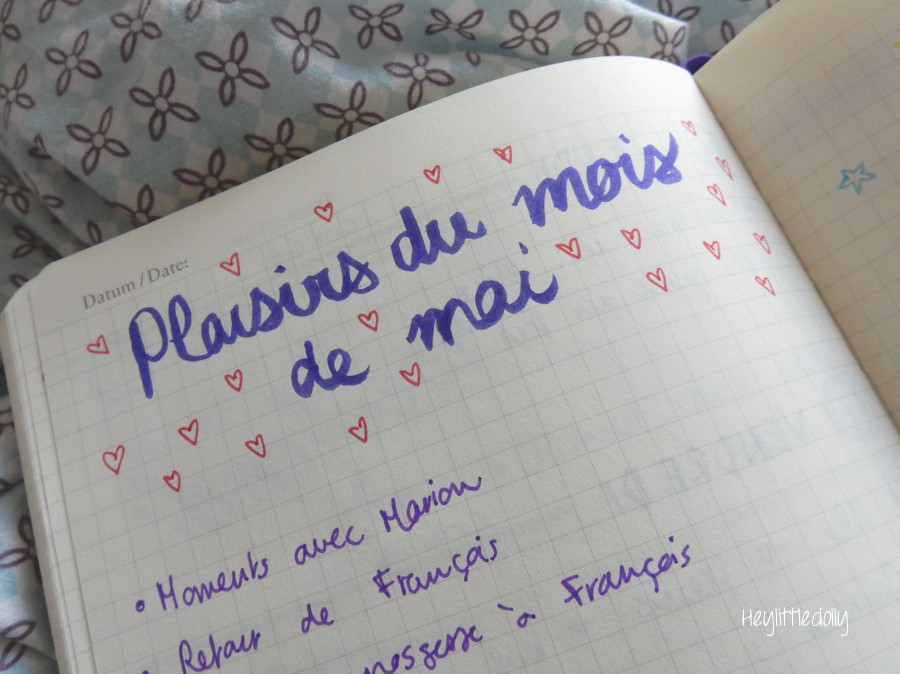 Datum / Date:
Plaisirs du mois
de mai
• Moments avec Marion
• Retour de François
à François
Heylittledolly